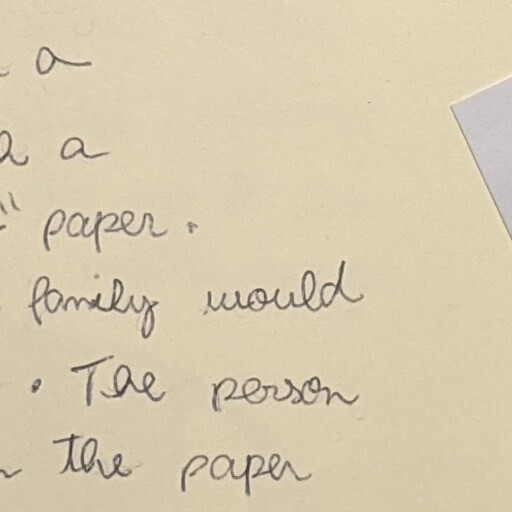 a
a
" paper.
family would
. The person
the paper